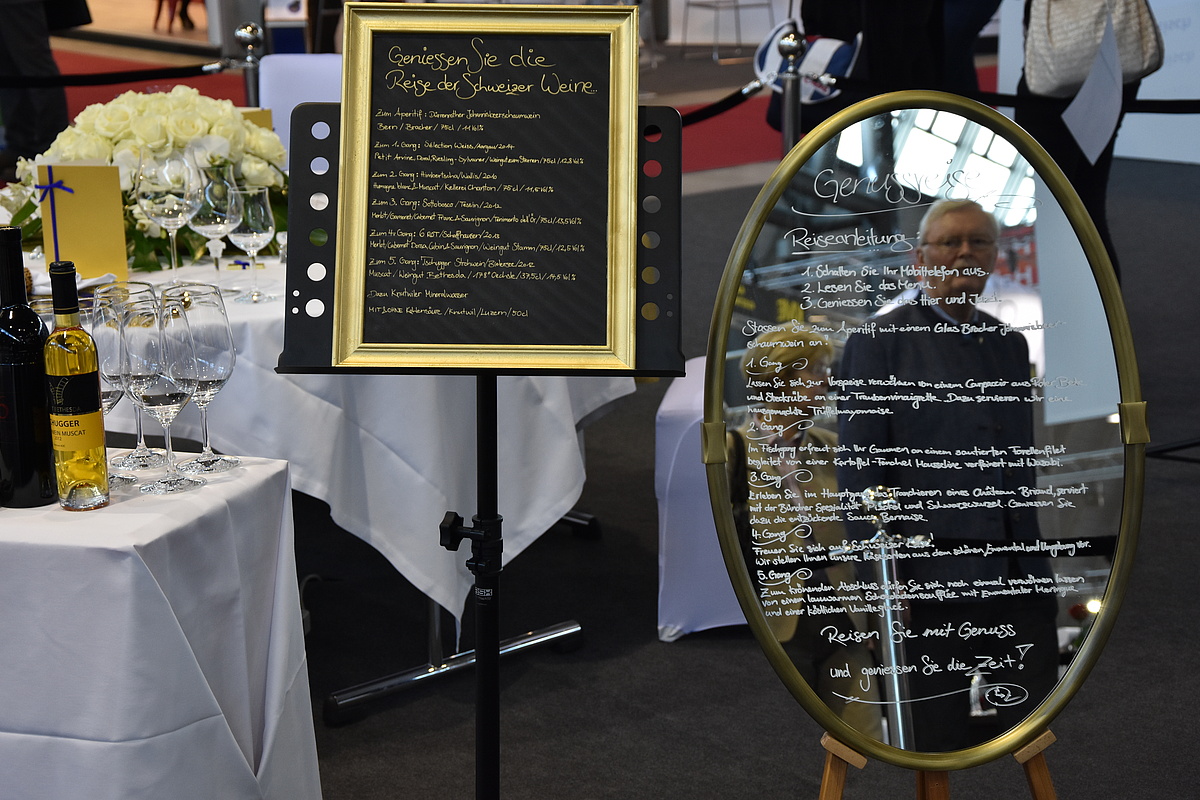 Geniessen Sie die
Reise der Schweizer Weine...
Zum Aperitif: Johanniterschaumwein
Bern / Bracher / 75cl / 11 Vol%
Zum 1. Gang: Sélection Weiss/Aargau/2014
Petit Arvine, Doral, Riesling-Sylvaner/Weingut zum Sternen/75cl/12,8 Vol%
Zum 2. Gang: Himbertscha/Wallis/2010
Humagne blanc & Muscat / Kellerei Chanton / 75 cl / 11,5 Vol%
Zum 3. Gang: Sottobosco / Tessin / 2012
Merlot/Gamaret/Cabernet Franc & Sauvignon/Tenimento dell'Ör/75cl/13,5 Vol%
Zum 4. Gang: GRST/Schaffhausen/2013
Merlot/Cabernet Dorsa, Cabernet & Sauvignon/Weingut Stamm/75cl/12,5 Vol%
Zum 5. Gang: Tschugger Strohwein/Bielersee/2012
Muscat / Weingut Bethesda / 178° Oechsle/37,5cl/14,5 Vol%
Dazu Knutwiler Mineralwasser
MIT & OHNE Kohlensäure / Knutwil / Luzern / 50cl
BETHESDA
HUGGER
MUSCAT
2012
Genussreise
Reiseanleitung:
1. Schalten Sie Ihr Mobiltelefon aus.
2. Lesen Sie das Menu.
3. Geniessen Sie das Hier und Jetzt.
Stossen Sie zum Aperitif mit einem Glas Bracher Johanniter-
schaumwein an.
1. Gang
Lassen Sie sich zur Vorspeise verwöhnen von einem Carpaccio aus Roter Bete
und Steckrübe an einer Traubenvinaigrette. Dazu servieren wir eine
hausgemachte Trüffelmayonnaise
2. Gang
Im Fischgang erfreut sich Ihr Gaumen an einem sautierten Forellenfilet
begleitet von einer Kartoffel-Fenchel Mousseline verfeinert mit Wasabi.
3. Gang
Erleben Sie im Hauptgang das Tranchieren eines Château Briand, serviert
mit der Bündner Spezialität Pizokel und Schwarzwurzel. Geniessen Sie
dazu die entzückende Sauce Bernaise.
4. Gang
Freuen Sie sich auf Schweizer Käse!
Wir stellen Ihnen unsere Käsesorten aus dem schönen Emmental und Umgebung vor.
5. Gang
Zum krönenden Abschluss dürfen Sie sich noch einmal verwöhnen lassen
von einem lauwarmen Schokoladensoufflée mit Emmentaler Meringue
und einer köstlichen Vanilleglacé.
Reisen Sie mit Genuss
und geniessen Sie die Zeit!